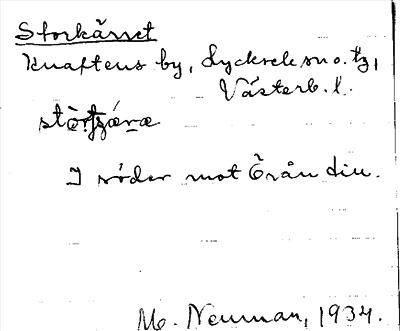 Storkärret
Knaftens by, Lycksele sn o. tg,
Västerb. l.
I söder mot Örån
M. Neuman, 1934.